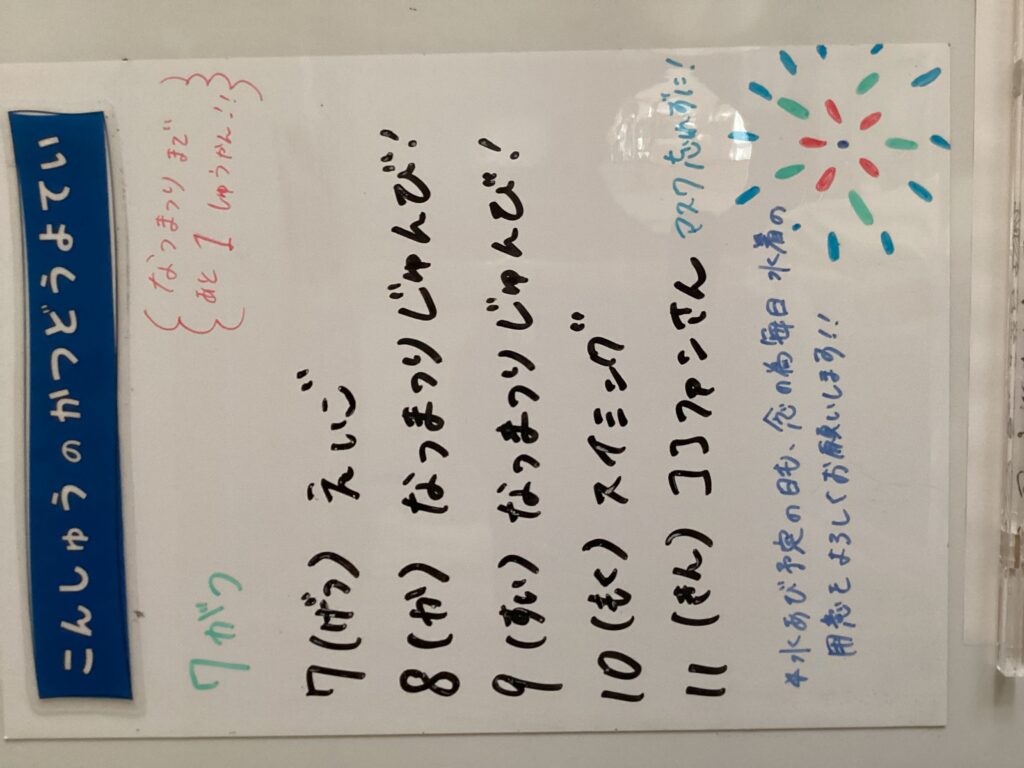 こんしゅうのかつどうよてい
7がつ
なつまつりまで
あと1しゅうかん!!
7(げつ) えいご
8(か) なつまつりじゅんび!
9(すい) なつまつりじゅんび!
10(もく) スイミング
11(きん) ココファンさん マスク忘れずに!
*水あび予定の日も、念の為毎日水着の
用意をよろしくお願いします!!